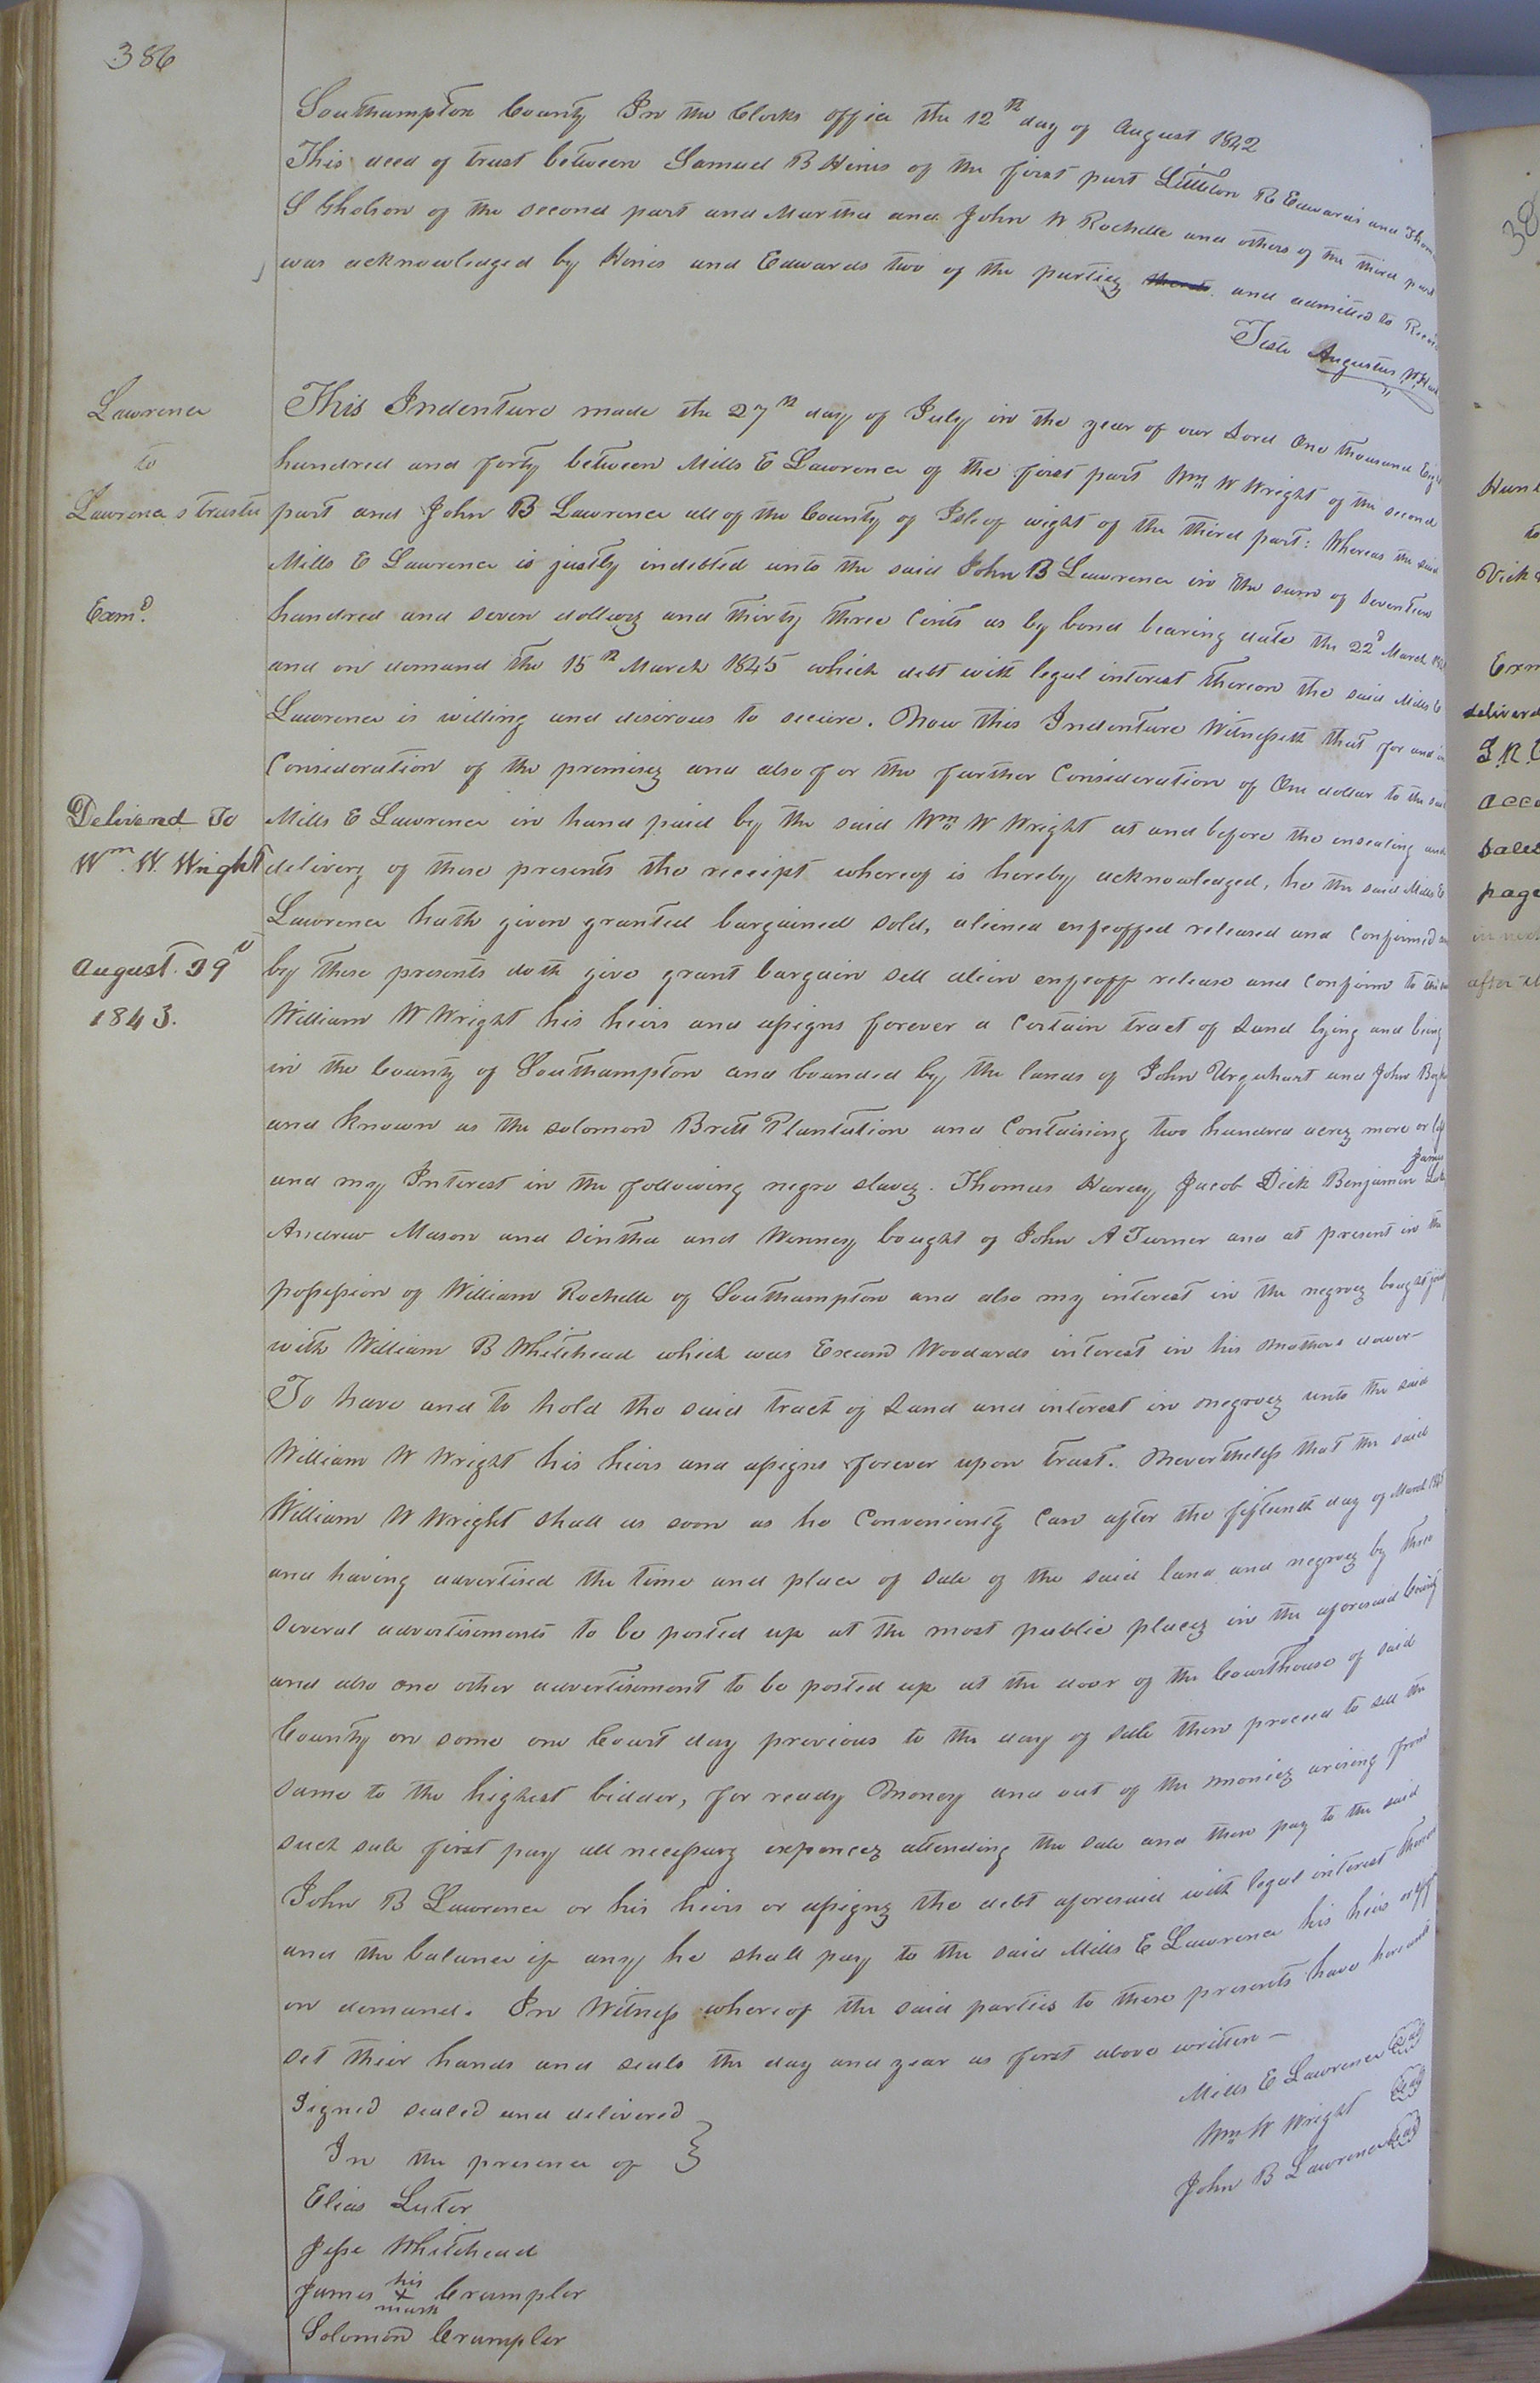 386
Southampton County In the Clerks office the 12th day of August 1842
This deed of trust between Samuel B Hines of the first part Littleton R Edwards and Thom
S Gholson of the second part and Martha and John W Rochelle and others of the third part
was acknowledged by Hines and Edwards two of the partiez and admitted to
Teste Augustus
Lawrence
to
Lawrence s trustee
This Indenture made the 27th day of July in the year of our Lord One thousand Eight
hundred and forty between Mills E Lawrence of the first part Wm W Wright of the second
part and John B Lawrence all of the County of Isle of wight of the third part: Whereas the said
Mills E Lawrence is justly indebted unto the said John B Lawrence in the sum of Seventeen
Examd.
hundred and seven dollarz and thirty three Cents as by bond bearing date the 22d March
and on demand the 15th March 1845 which debt with legal interest thereon the said Mills E
Lawrence is willing and desirous to secure. Now this Indenture Witnesseth that for and in
Consideration of the premisez and also for the further Consideration of One dollar to the said
Delivered To
Wm. W. Wright
August 29d
1843.
Mills E Lawrence in hand paid by the said Wm W Wright at and before the ensealing and
delivery of these presents the receipt whereof is hereby acknowledged, he the said Mills E
Lawrence hath given granted bargained sold, aliened enfeoffed released and Confirmed and
by these presents doth give grant bargain sell alien enfeoff release and Confirm to
William W Wright his heirs and assigns forever a Certain tract of Land lying and being
in the County of Southampton and bounded by the lands of John Urquhart and John
and Known as the solomon Britt Plantation and Containing two hundred acrez more or less
and my Interest in the following negro slavez. Thomas Hardy Jacob Dick Benjamin James
Andrew Mason and Sintha and Wenney bought of John A Turner and at present in the
possession of William Rochelle of Southampton and also my interest in the negroez bought
with William B Whitehead which was Exum Woodards interest in his Mothers dower–
To have and to hold the said tract of Land and interest in negroez unto the said
William W Wright his heirs and assigns forever upon trust. Nevertheless that the said
William W Wright shall as soon as he Conveniently Can after the fifteenth day of March 1845
and having advertised the time and place of sale of the said land and negroez by three
several advertisements to be posted up at the most public placez in the aforesaid County
and also one other advertisement to be posted up at the door of the Courthouse of said
County on some one Court day previous to the day of sale then proceed to sell the
same to the highest bidder, for ready Money and out of the moniez arising from
such sale first pay all necessary expencez attending the sale and then pay to the said
John B Lawrence or his heirs or assignz the debt aforesaid with legal interest thereon
and the balance if any he shall pay to the said Mills E Lawrence his heirs or
on demand. In Witness whereof the said parties to these presents have hereunto
set their hands and seals the day and year as first above written–
Signed sealed and delivered
In the presence of
Elias Luter
Jesse Whitehead
James his X mark Crumpler
Solomon Crumpler
Mills E Lawrence Seal
Wm W Wright Seal
John B Lawrence Seal
to
Vick
deliverd
Sales
page